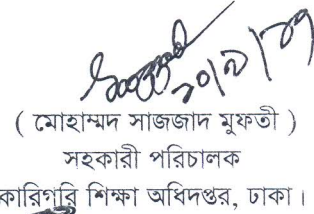 ( মোহাম্মদ সাজজাদ মুফতী )
সহকারী পরিচালক
কারিগরি শিক্ষা অধিদপ্তর, ঢাকা।